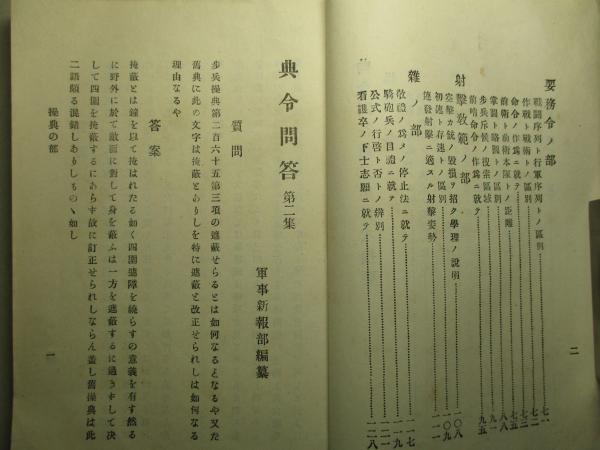 要務令ノ部
戰鬪序列ト行軍序列トノ區別……七一
作戰ト戰術トノ區別……七二
命令ノ作爲ニ就テ……七三
前衛ト前衛本隊トノ距離……七五
掌圖ト略圖トノ區別……八八
步兵斥候ノ搜索區域……九一
前哨命令ノ作爲ニ就テ……九五
射擊敎範ノ部
空擊力銃ノ毀損ヲ招ク學理ノ說明……一〇八
初速ト存速トノ區別……一〇九
連發射擊ニ適スル射擊姿勢……一一一
雜ノ部
敬禮ノ爲メノ停止法ニ就テ……一一七
騎砲兵ノ目禮ニ就テ……一一九
公式ノ行啓ト否トノ辨別……一二一
看護卒ノ下士志願ニ就テ……一二八
二
典令問答 第二集
軍事新報部編纂
質問
步兵操典第二百六十五第三項の遮蔽せらるとは如何なるとなるや又た
舊典に此の文字は掩蔽とありしを特に遮蔽と改正せられしは如何なる
理由なるや
答案
掩蔽とは鐘を以て掩はれたる如く四圍遮障を繞らすの意義を有す然る
に野外に於て敵面に對して身を蔽ふは一方を遮蔽するに過きすして决
して四圍を掩蔽するにあらす故に訂正せられしならん盖し舊操典は此
二語頗る混錯しありしものゝ如し
操典の部
一